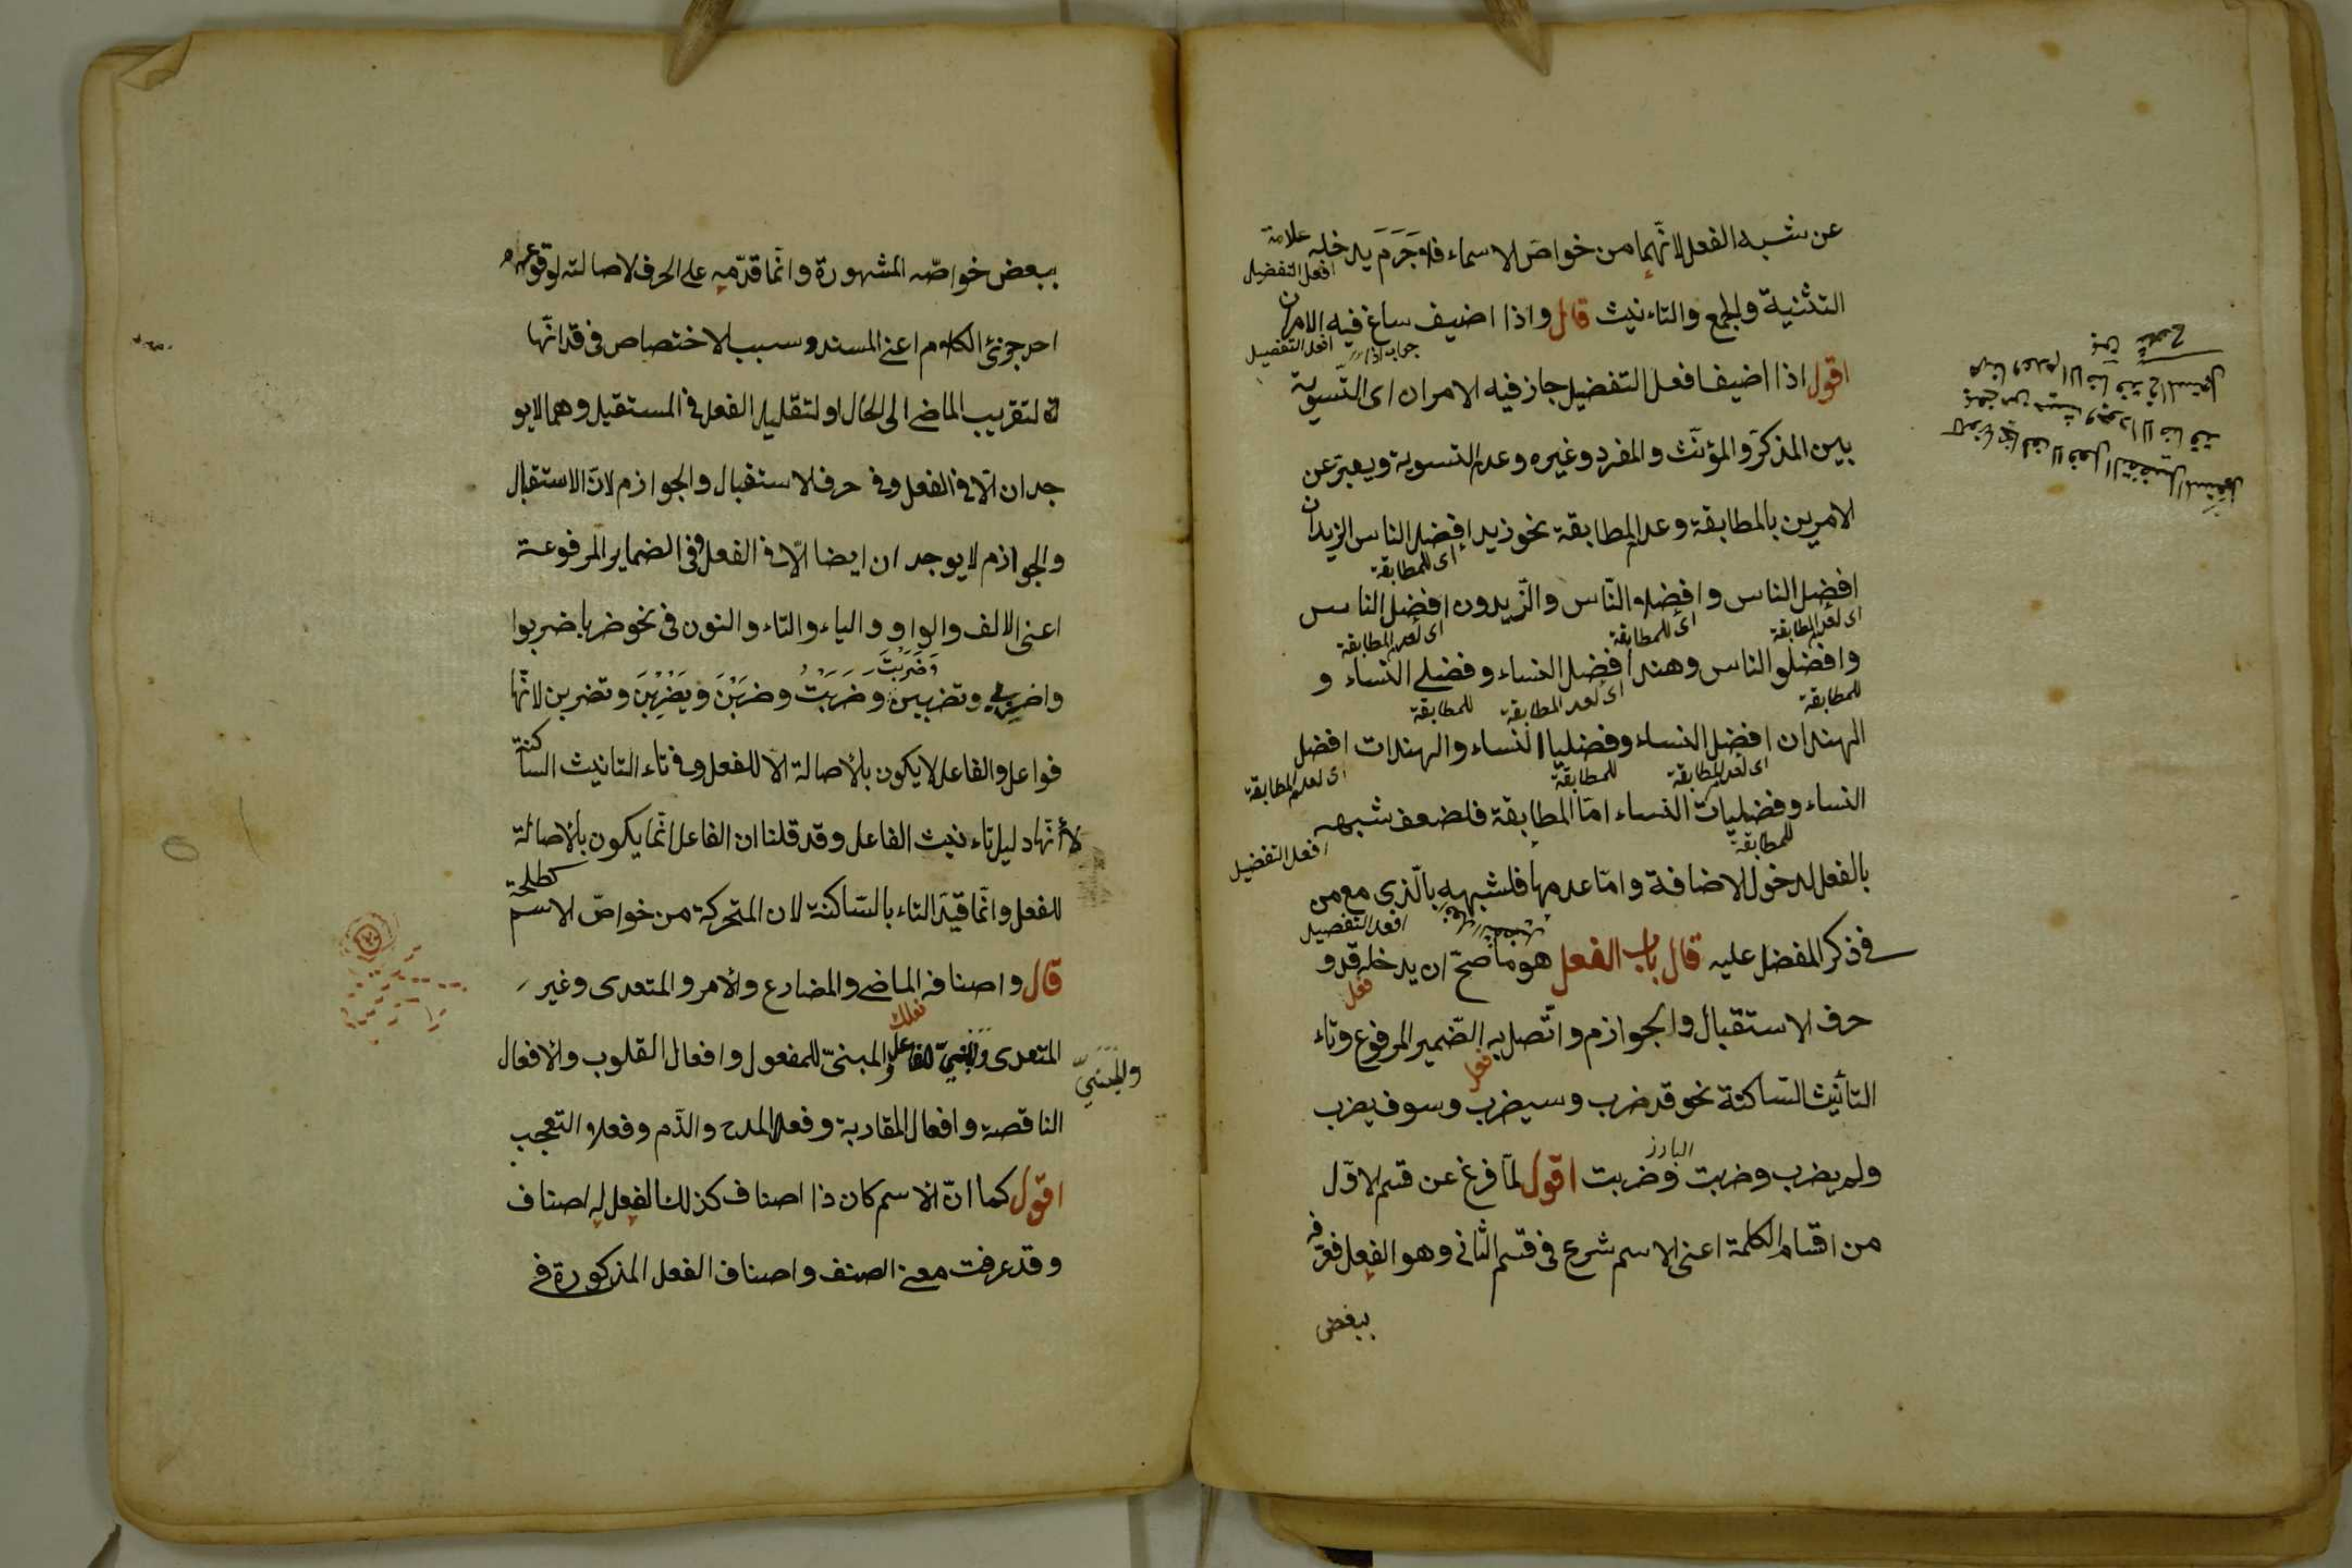 عن شبه الفعل لانّهما من خواص الاسماء فلا جَرَمَ يدخله علامة
افعل التفضيل
التثنية والجمع والتاءنيث قال واذا اضيف ساغ فيه الامران
جواب اذا افعل التفضيل
اقول اذا اضيف افعل التفضيل جاز فيه الامران اى التّسوية
بين المذكر والمؤنّث والمفرد وغيره وعدم التسوية ويعبّر عن
الامرين بالمطابقة وعدم المطابقة نحو زيد افضل الناس الزيدان
اى للمطابقة
افضل الناس وافضلا النّاس والزّيدون افضل الناس
اى لعدم المطابقة اى للمطابقة اى لعدم المطابقة
وافضلو الناس وهند افضل النساء وفضلى النساء و
للمطابقة اى لعدم المطابقة للمطابقة
الهندان افضل النساء وفضليا النساء والهندات افضل
اى لعدم المطابقة للمطابقة اى لعدم المطابقة
النساء وفضليات النساء امّا المطابقة فلضعف شبهه
للمطابقة افعل التفضيل
بالفعل لدخول الاضافة وامّا عدمها فلشبهه بالّذى مع من
افعل التفضيل
فى ذكر المفضل عليه قال باب الفعل هو ما صحّ ان يدخله قد و
فعل
حرف الاستقبال والجوازم واتّصل به الضّمير المرفوع وتاء
فعل
التأنيث السّاكنة نحو قد ضرب وسيضرب وسوف يضرب
البارز
ولم يضرب وضربت وضربت اقول لمّا فرغ عن قسم الاوّل
من اقسام الكلمة اعنى الاسم شرع فى قسم الثّانى وهو الفعل فعرّفه
ببعض
ببعض خواصّه المشهورة وانّما قدّمه على الحرف لاصالته لوقوعه
احد جزئى الكلام اعنى المسند وسبب الاختصاص فى قد انّها
لتقريب الماضى الى الحال او لتقليل الفعل فى المستقبل وهما لا يو
جدان الّا فى الفعل وفى حرف الاستقبال والجوازم لانّ الاستقبال
والجوازم لا يوجدان ايضا الّا فى الفعل وفى الضماير المرفوعة
اعنى الالف والواو والياء والتاء والنون فى نحو ضربا ضربوا
وَضَرَبْتَ
واضربى وتضربين وضَرَبْتُ وضرَبْنَ ويَضْرِبْنَ وتضربن لانّها
فواعل والفاعل لا يكون بالأصالة الا للفعل وفى تاء التانيث الساكنة
لأنّها دليل تاءنيث الفاعل وقد قلنا ان الفاعل انّما يكون بالأصالة
للفعل وانّما قيّد التاء بالسّاكنة لان المتحركة من خواصّ الاسم كطلحة
قال واصنافه الماضى والمضارع والأمر والمتعدى وغير
المتعدى والمبنىّ للفاعل والمبنىّ للمفعول وافعال القلوب والافعال
والمَبْنِىّ
الناقصة وافعال المقاربة وفعلا المدح والذّم وفعلا التعجب
اقول كما انّ الاسم كان ذا اصناف كذلك الفعل له اصناف
وقد عرفت معنى الصنف واصناف الفعل المذكورة فى